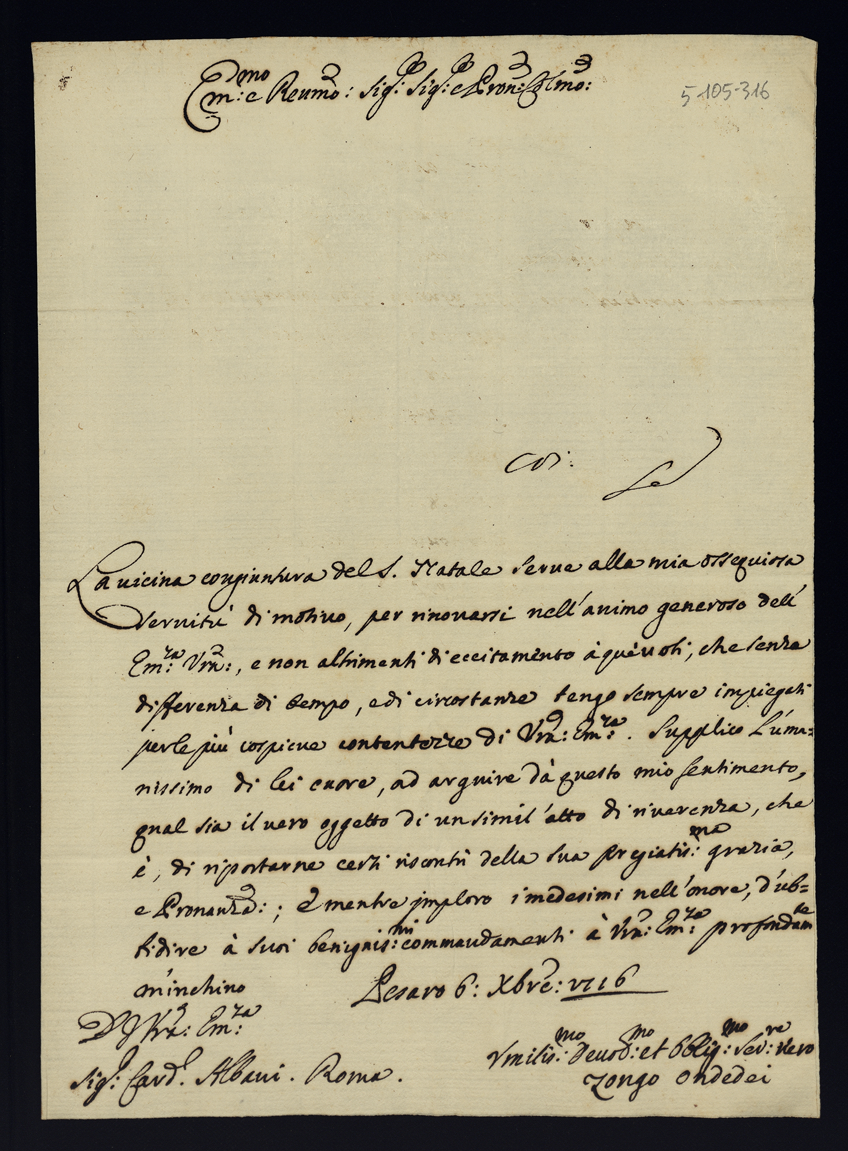 Em:mo e Reumo: Sig:r Sig:r e Pron: Colmo:
5-105-316
La uicina congiuntura del S. Natale serue alla mia ossequiosa
seruitù di motiuo, per rinouarsi nell'animo generoso dell'
Em:za Vra:, e non altrimenti di eccitamento à què uoti, che senza
differenza di tempo, e di circostanze tengo sempre impiegati
per le più cospicue contentezze di Vra: Em:za. Supplico L'uma=
nissimo di lei cuore, ad arguire dà questo mio sentimento,
qual sia il uero oggetto di un simil'atto di riuerenza, che
è, di riportarne certi riscontri della sua pregiatis:ma grazia,
e Pronanza:; E mentre jmploro i medesimi nell'onore, d'ub=
bidire à suoi benignis:mi commandamenti à Vra: Em:za profondam:te
m'inchino
Pesaro 6: Xbre: 1716
D V Vra: Em:za
Vmilis:mo Deuot:mo et Obblig:mo Ser:re uero
Sig:r Card:l Albani. Roma.
Zongo Ondedei